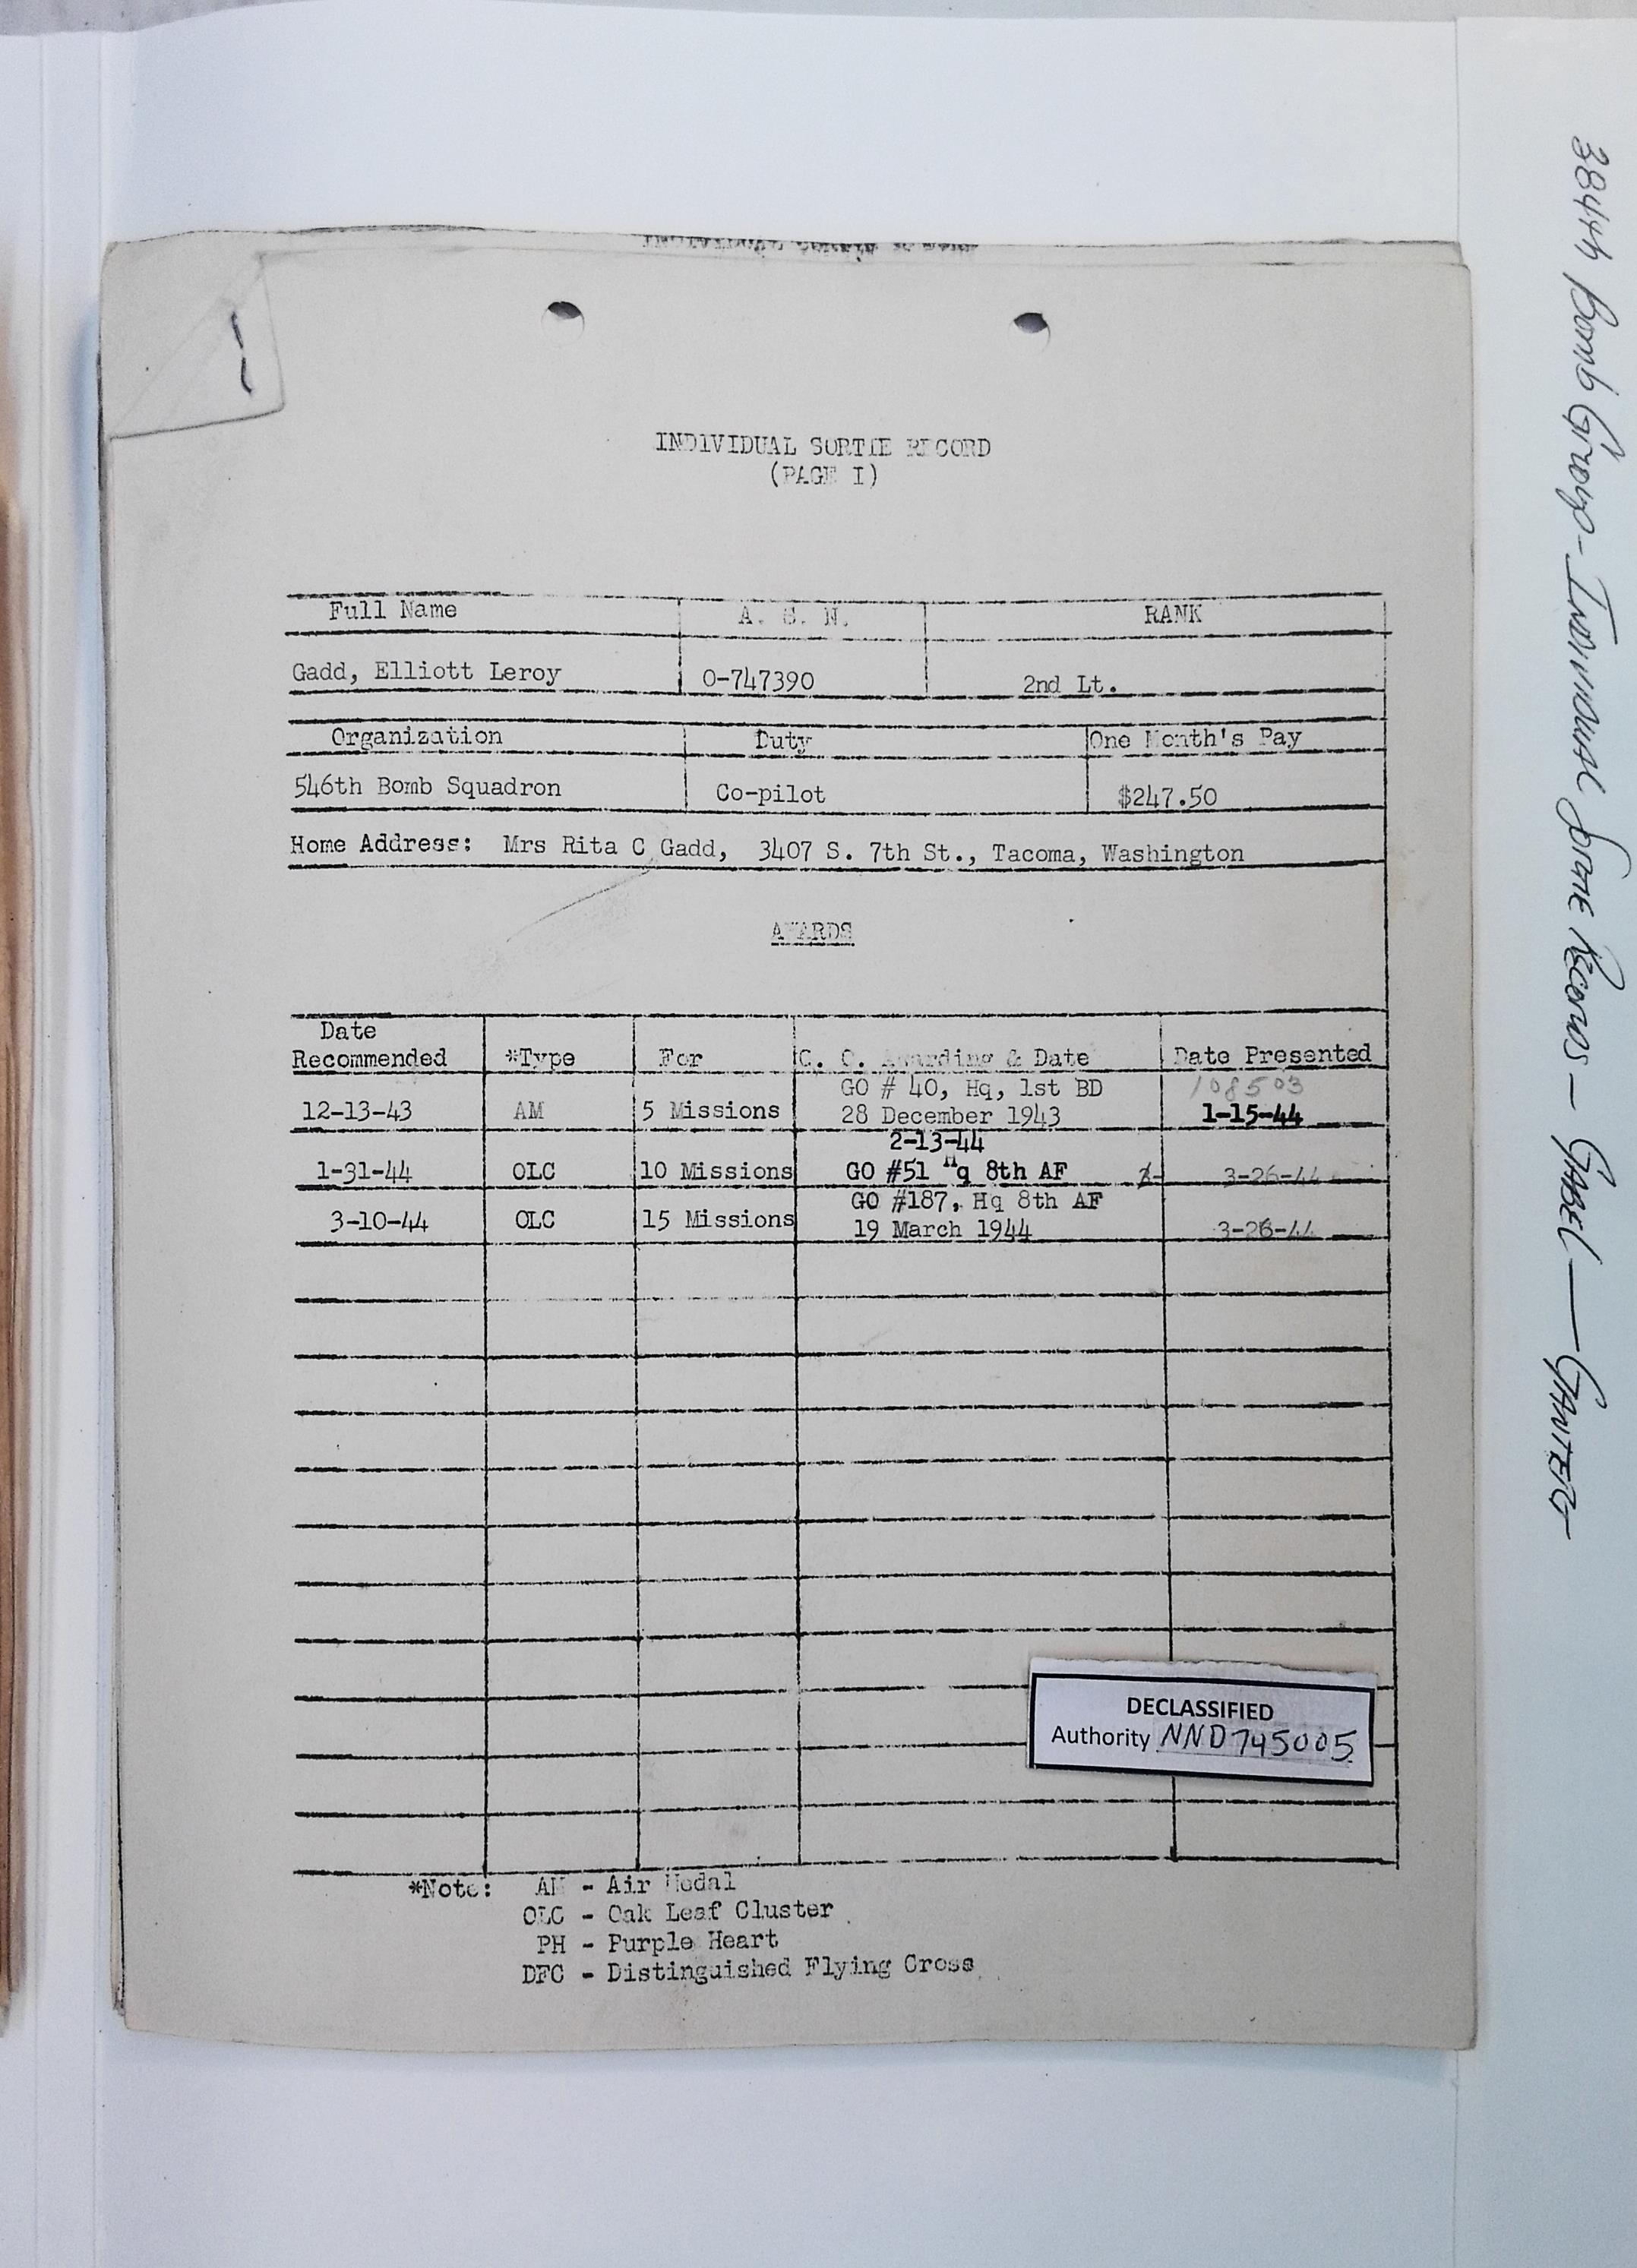 INDIVIDUAL SORTIE RECORD
(PAGE I)
Full Name A. S. N. RANK
Gadd, Elliott Leroy 0-747390 2nd Lt.
Organization Duty One Month's Pay
546th Bomb Squadron Co-pilot $247.50
Home Address: Mrs Rita C Gadd, 3407 S. 7th St., Tacoma, Washington
AWARDS
Date
Recommended *Type For C. O. Awarding & Date Date Presented
GO # 40, Hq, 1st BD 108503
12-13-43 AM 5 Missions 28 December 1943 1-15-44
2-13-44
1-31-44 OLC 10 Missions GO #51 Hq 8th AF 3-26-44
GO #187, Hq 8th AF
3-10-44 OLC 15 Missions 19 March 1944 3-26-44
DECLASSIFIED
Authority NND745005
*Note: AM - Air Medal
OLC - Oak Leaf Cluster
PH - Purple Heart
DFC - Distinguished Flying Cross
384th Bomb Group - Individual Sortie Records - GABEL — GANTER